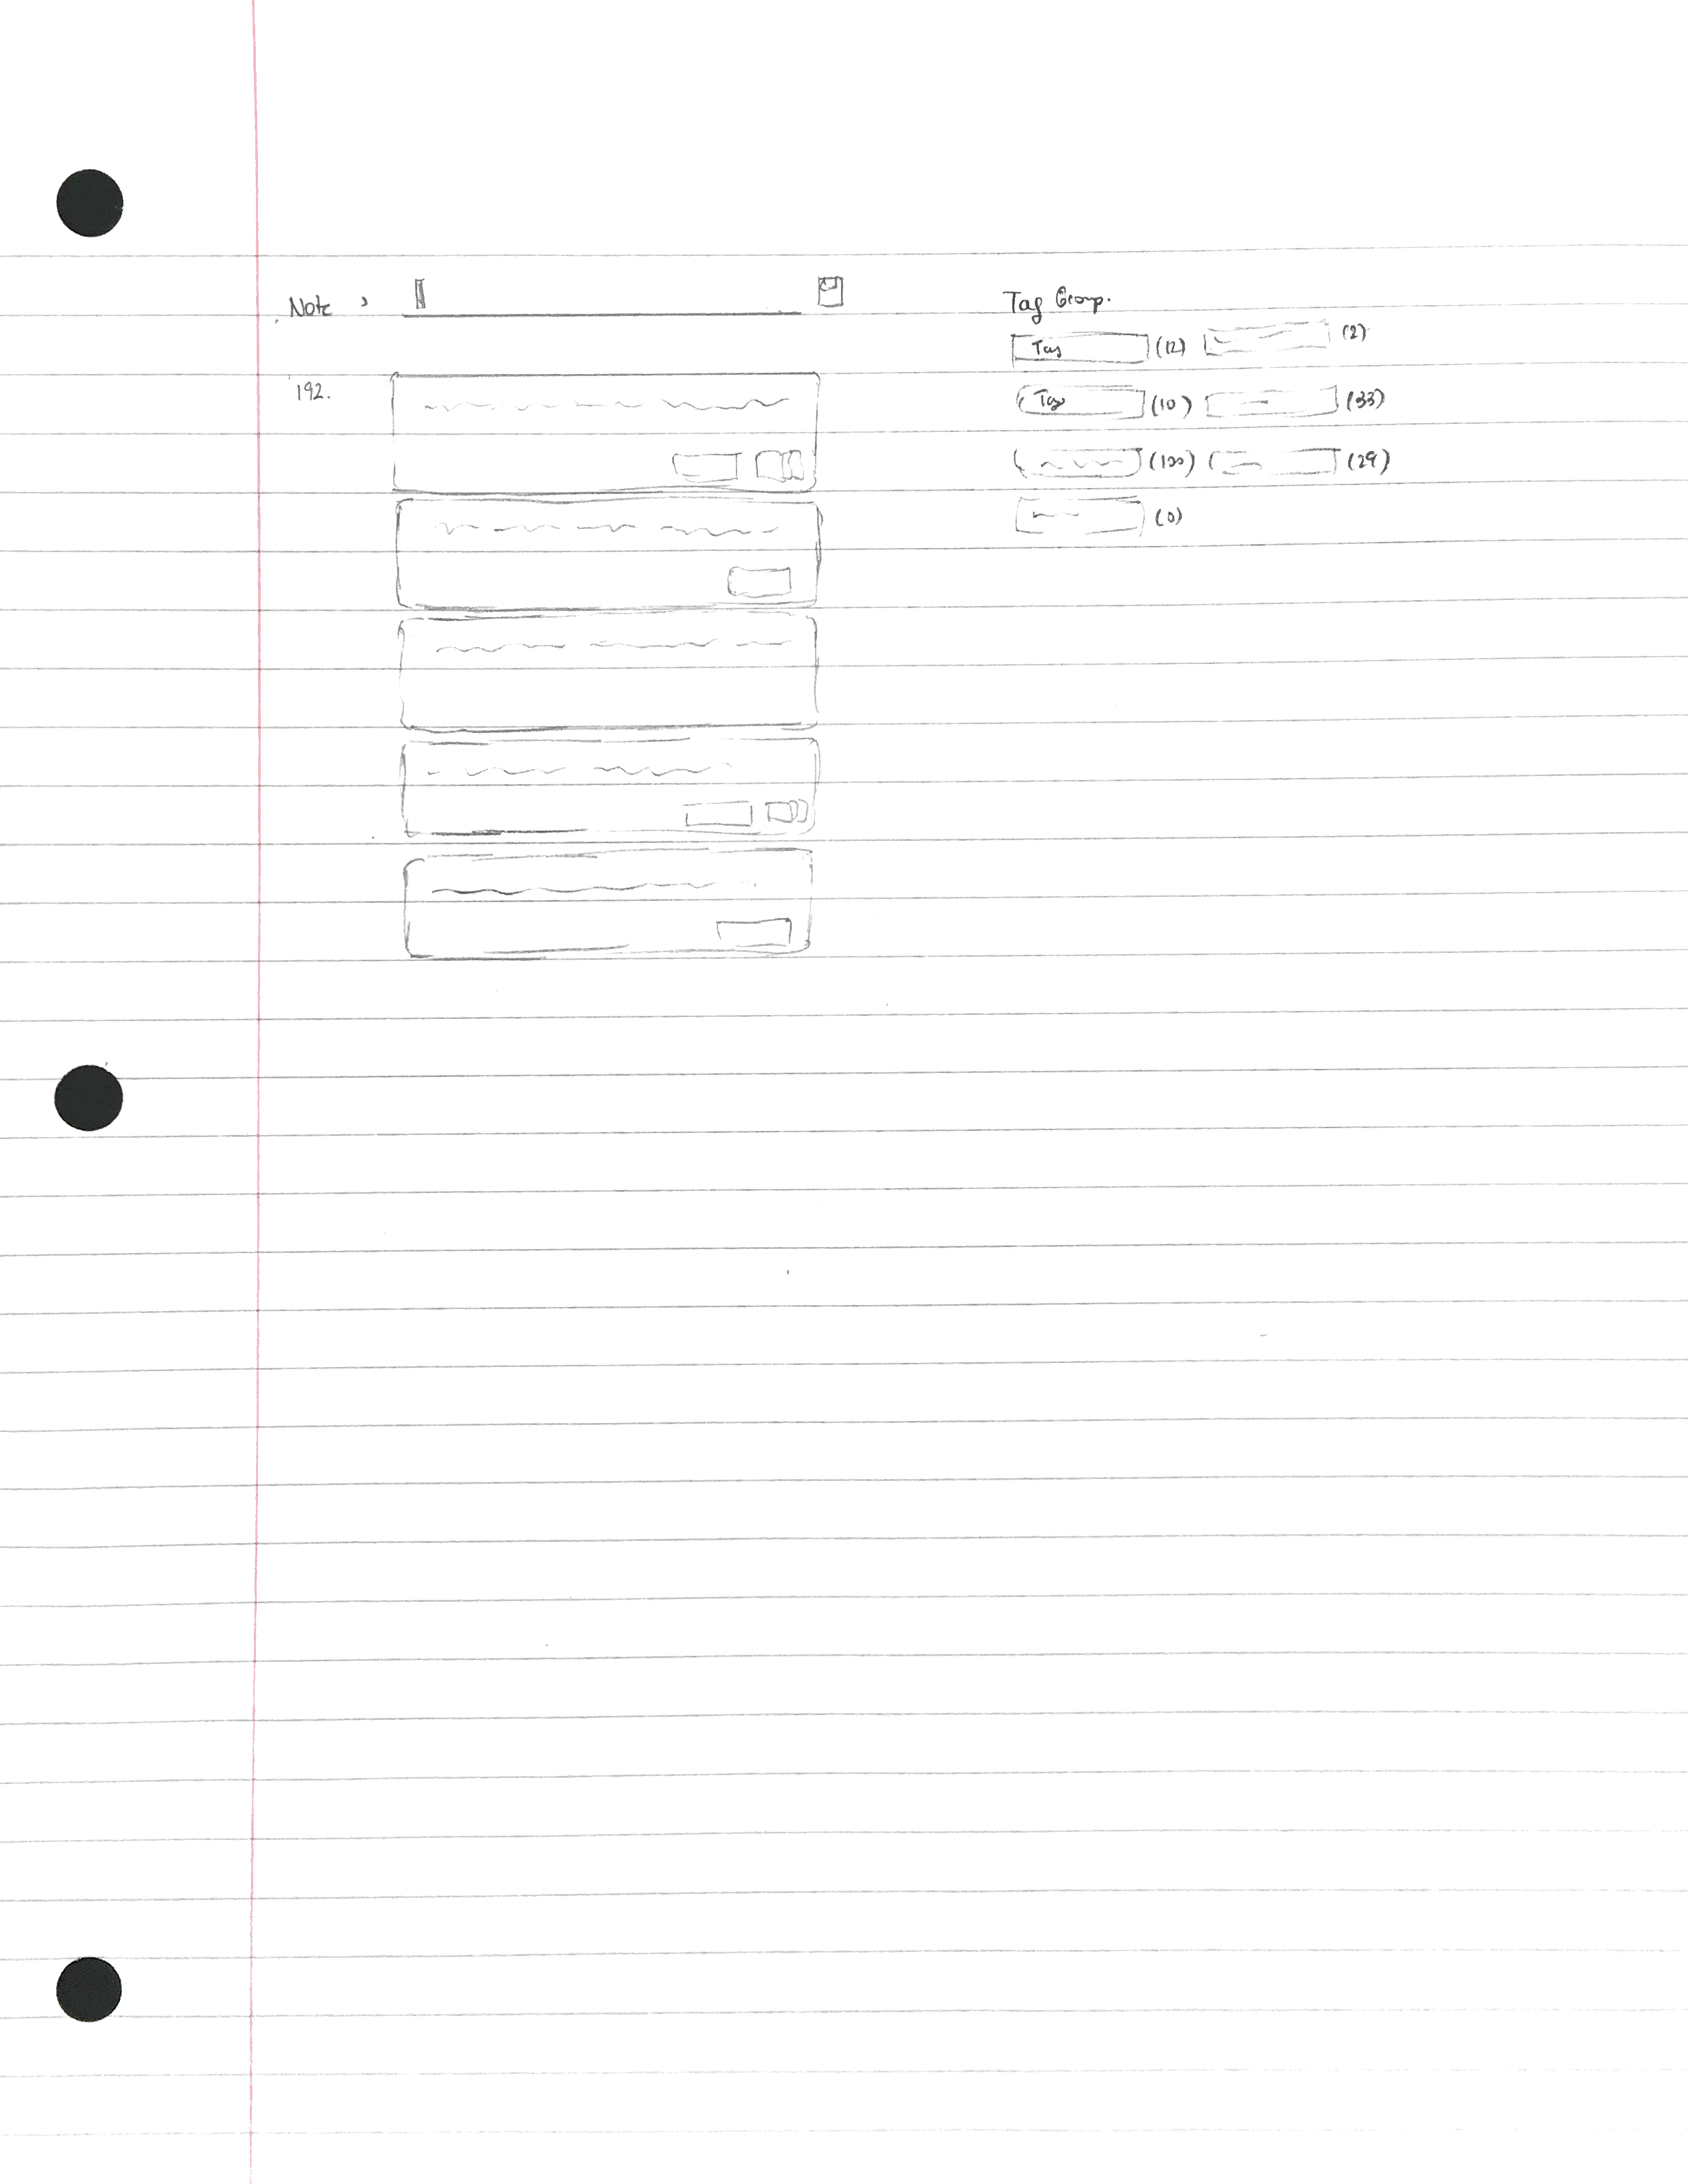 Note >
192.
Tag Group.
Tag (12) (2)
Tag (10) (33)
(100) (29)
(0)